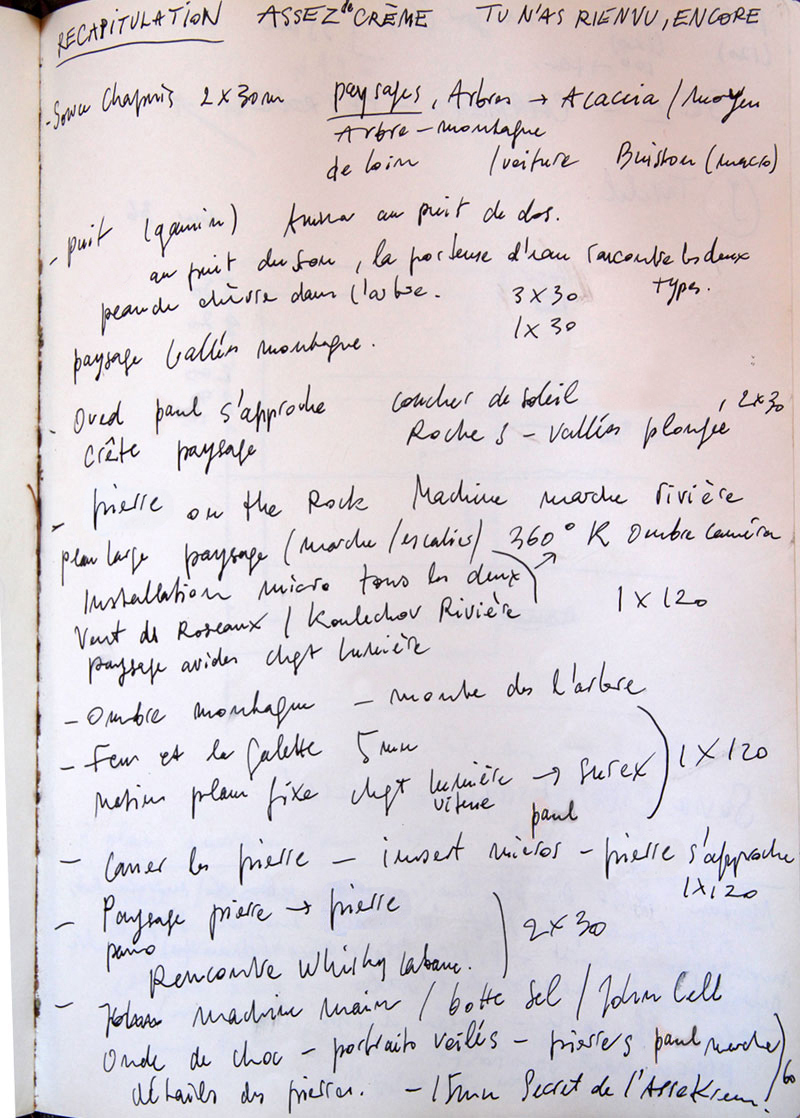 RECAPITULATION ASSEZ de CRÈME TU N'AS RIEN VU, ENCORE
- Chapuis 2 x 30 m paysages, Arbres → Acaccia / moyen
Arbre - montagne
de loin / voiture Buisson (macro)
- puit (gamin) Amina au puit de dos.
au puit du son, la porteuse d'eau rencontre les deux
peau de chèvre dans l'arbre. 3 x 30 types.
1 x 30
paysage vallées montagne.
- Oued paul s'approche coucher de soleil , 2 x 30
crête paysage Roches - vallées plongée
- pierre on the Rock Machine marche rivière
plan large paysage (marche / escalier) 360° Ombre caméra
Installation micro tous les deux
1 x 120
Vent ds Roseaux / Koulechov Rivière
paysage arides chgt lumière
- Ombre montagne - monte ds l'arbre
- Feu et la galette 5mn
1 x 120
Matin plan fixe chgt lumière → surex
vitesse
paul
- Casser les pierre - insert micros - pierre s'approche
1 x 120
- Paysage pierre → pierre
pano 2 x 30
Rencontre Whisky cabane.
- machine main / botte sel / John Cell
Onde de choc - portraits voilés - pierres paul marche
détails des pierres. - 15mn Secret de l'Assekrem. 60